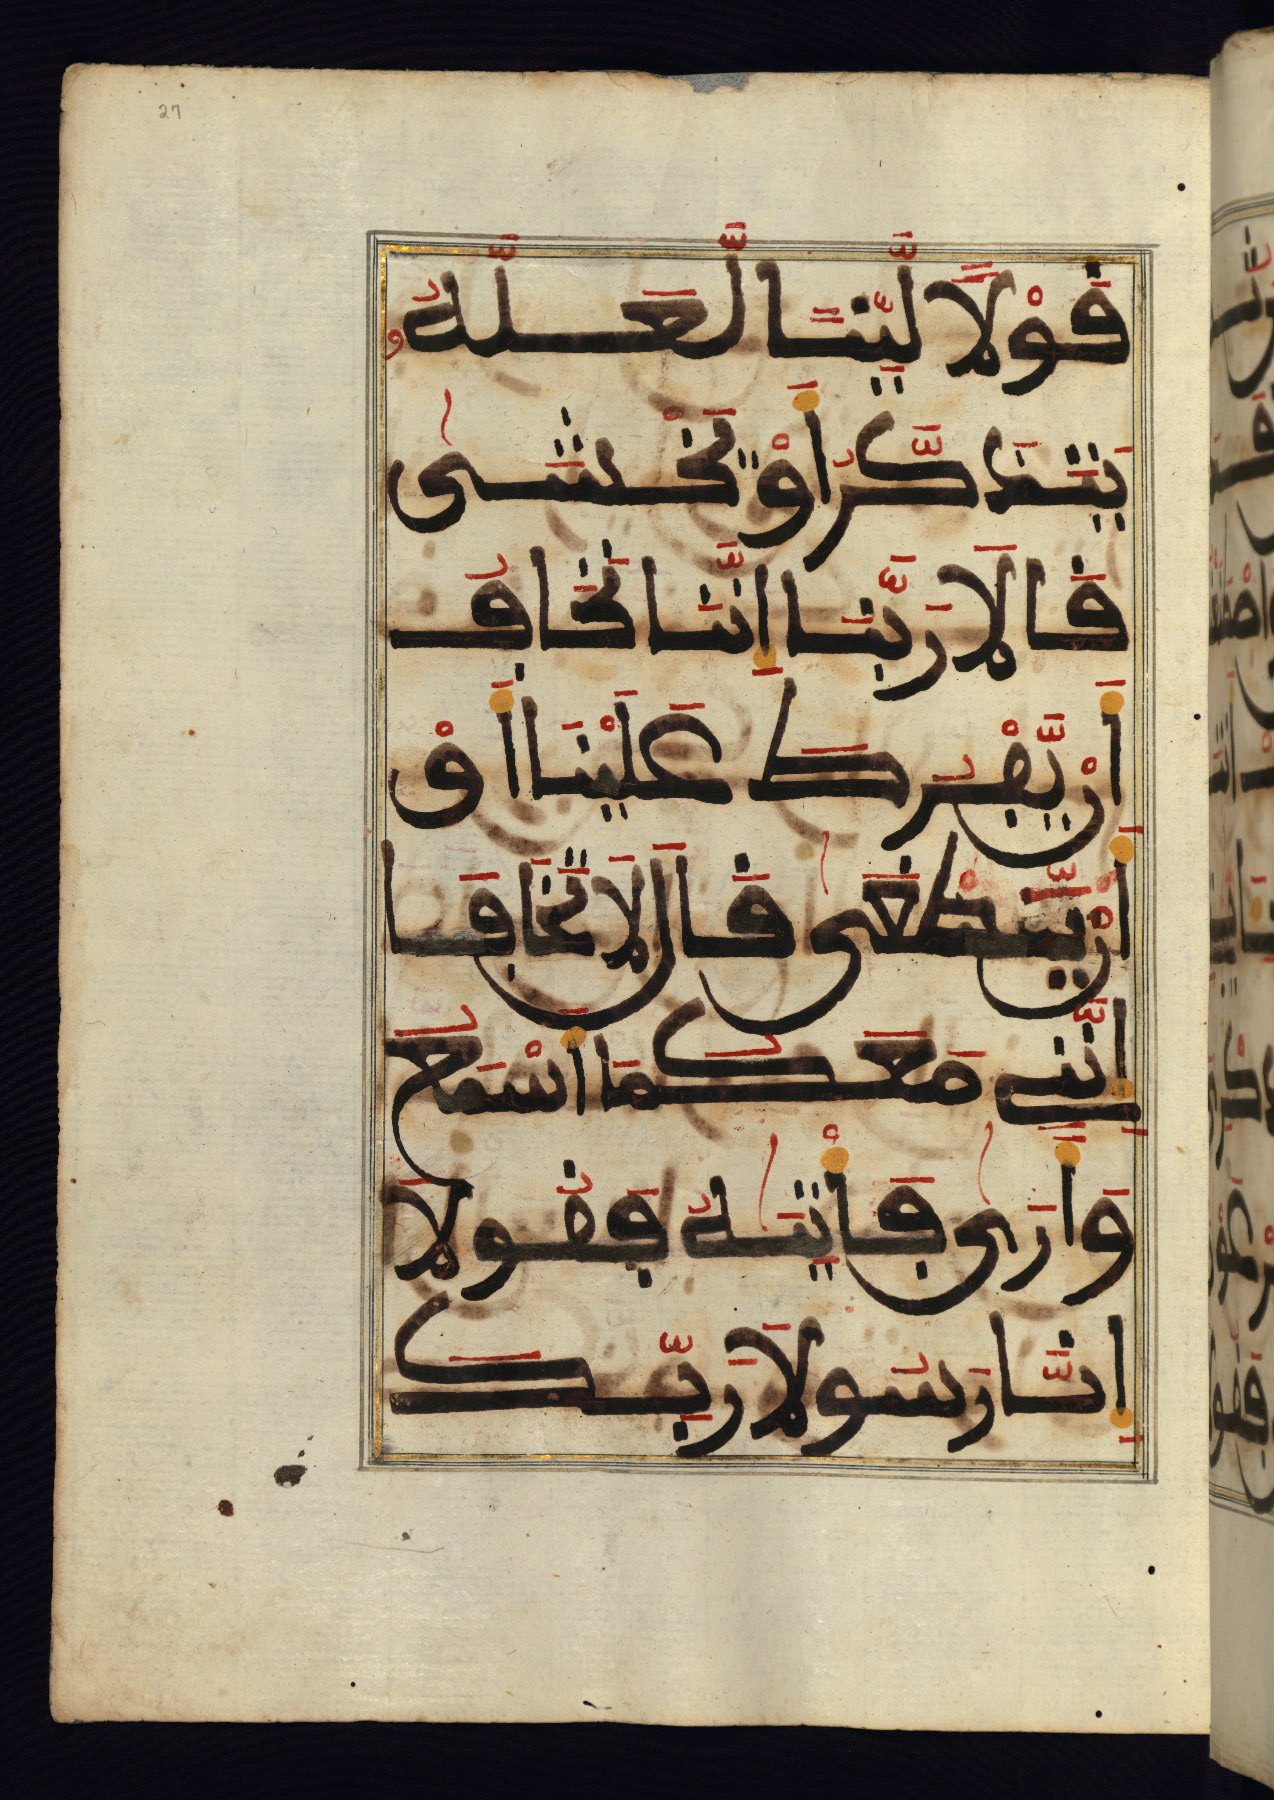 27
قَوْلًا لَّيِّنًا لَّعَلَّهُۥ
يَتَذَكَّرُ أَوْ يَخْشَىٰ
قَالَا رَبَّنَا إِنَّنَا نَخَافُ
أَنْ يَّفْرُطَ عَلَيْنَا أَوْ
أَنْ يَّطْغَىٰ قَالَ لَا تَخَافَا
إِنَّنِي مَعَكُمَا أَسْمَعُ
وَأَرَىٰ فَأْتِيَٰهُ فَقُولَا
إِنَّا رَسُولَا رَبِّكَ